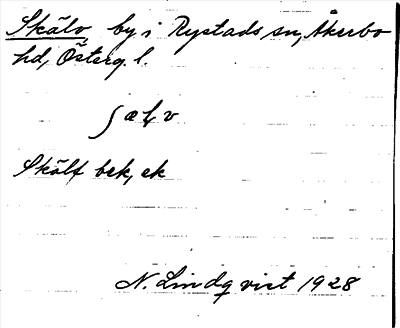 Skälv, by i Rystads sn, Åkerbo
hd, Österg. l.
ʃæɬv
Skälf bek, ek
N. Lindqvist 1928